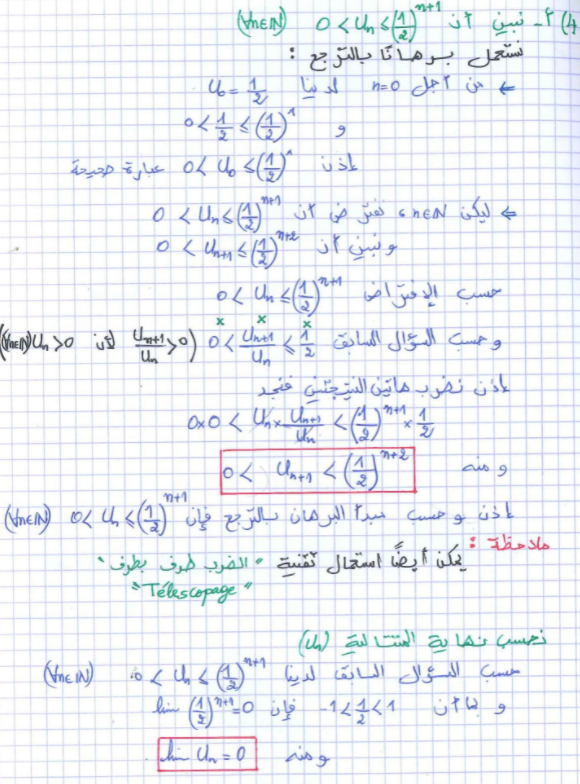 4) أ- نبين أن 0 < Uₙ ≤ (1/2)ⁿ⁺¹ (∀n∈ℕ)
نستعمل برهانا بالترجع :
← من أجل n=0 لدينا U₀ = 1/2
و 0 < 1/2 ≤ (1/2)¹
إذن 0 < U₀ ≤ (1/2)¹ عبارة صحيحة
← ليكن n∈ℕ، نفترض أن 0 < Uₙ ≤ (1/2)ⁿ⁺¹
ونبين أن 0 < Uₙ₊₁ ≤ (1/2)ⁿ⁺²
حسب الإفتراض 0 < Uₙ ≤ (1/2)ⁿ⁺¹
× × ×
وحسب السؤال السابق 0 < Uₙ₊₁/Uₙ ≤ 1/2 (Uₙ₊₁/Uₙ > 0 لأن Uₙ > 0 (∀n∈ℕ)
إذن نضرب هاتين النتيجتين فنجد
0×0 < Uₙ × Uₙ₊₁/Uₙ < (1/2)ⁿ⁺¹ × 1/2
ومنه 0 < Uₙ₊₁ < (1/2)ⁿ⁺²
إذن وحسب مبدأ البرهان بالترجع فإن 0 < Uₙ ≤ (1/2)ⁿ⁺¹ (∀n∈ℕ)
ملاحظة : يمكن أيضًا استعمال تقنية "الضرب طرف بطرف"
"Télescopage"
نحسب نهاية المتتالية (Uₙ)
حسب السؤال السابق لدينا 0 < Uₙ ≤ (1/2)ⁿ⁺¹ (∀n∈ℕ)
و بما أن -1 < 1/2 < 1 فإن lim (1/2)ⁿ⁺¹ = 0
ومنه lim Uₙ = 0